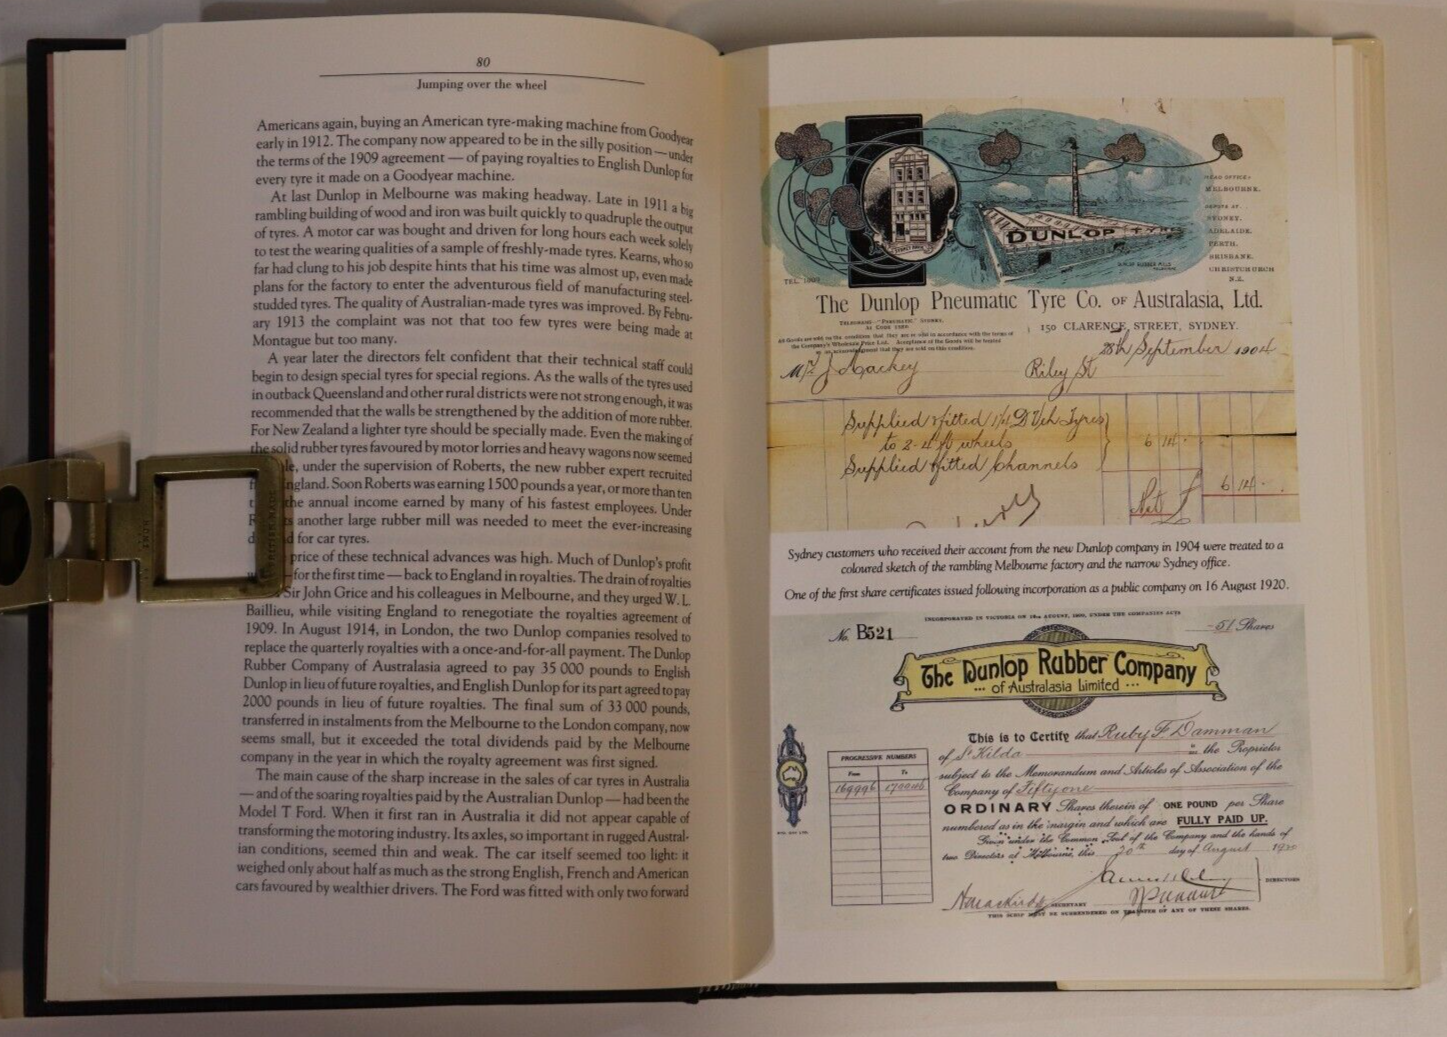 80
Jumping over the wheel
Americans again, buying an American tyre-making machine from Goodyear
early in 1912. The company now appeared to be in the silly position — under
the terms of the 1909 agreement — of paying royalties to English Dunlop for
every tyre it made on a Goodyear machine.
At last Dunlop in Melbourne was making headway. Late in 1911 a big
rambling building of wood and iron was built quickly to quadruple the output
of tyres. A motor car was bought and driven for long hours each week solely
to test the wearing qualities of a sample of freshly-made tyres. Kearns, who so
far had clung to his job despite hints that his time was almost up, even made
plans for the factory to enter the adventurous field of manufacturing steel-
studded tyres. The quality of Australian-made tyres was improved. By Febru-
ary 1913 the complaint was not that too few tyres were being made at
Montague but too many.
A year later the directors felt confident that their technical staff could
begin to design special tyres for special regions. As the walls of the tyres used
in outback Queensland and other rural districts were not strong enough, it was
recommended that the walls be strengthened by the addition of more rubber.
For New Zealand a lighter tyre should be specially made. Even the making of
the solid rubber tyres favoured by motor lorries and heavy wagons now seemed
under the supervision of Roberts, the new rubber expert recruited
England. Soon Roberts was earning 1500 pounds a year, or more than ten
the annual income earned by many of his fastest employees. Under
another large rubber mill was needed to meet the ever-increasing
for car tyres.
price of these technical advances was high. Much of Dunlop's profit
— for the first time — back to England in royalties. The drain of royalties
Sir John Grice and his colleagues in Melbourne, and they urged W. L.
Baillieu, while visiting England to renegotiate the royalties agreement of
1909. In August 1914, in London, the two Dunlop companies resolved to
replace the quarterly royalties with a once-and-for-all payment. The Dunlop
Rubber Company of Australasia agreed to pay 35 000 pounds to English
Dunlop in lieu of future royalties, and English Dunlop for its part agreed to pay
2000 pounds in lieu of future royalties. The final sum of 33 000 pounds,
transferred in instalments from the Melbourne to the London company, now
seems small, but it exceeded the total dividends paid by the Melbourne
company in the year in which the royalty agreement was first signed.
The main cause of the sharp increase in the sales of car tyres in Australia
— and of the soaring royalties paid by the Australian Dunlop — had been the
Model T Ford. When it first ran in Australia it did not appear capable of
transforming the motoring industry. Its axles, so important in rugged Austral-
ian conditions, seemed thin and weak. The car itself seemed too light: it
weighed only about half as much as the strong English, French and American
cars favoured by wealthier drivers. The Ford was fitted with only two forward
HEAD OFFICE:
MELBOURNE.
SYDNEY.
ADELAIDE.
PERTH.
BRISBANE.
CHRISTCHURCH
N.Z.
DUNLOP TYRE
TEL.
The Dunlop Pneumatic Tyre Co. OF Australasia, Ltd.
150 CLARENCE STREET, SYDNEY.
28th September 1904
J Mackey
Riley St
Supplied & fitted
to 2 - wheels
6 14
Supplied & fitted Channels
6 14
Sydney customers who received their account from the new Dunlop company in 1904 were treated to a
coloured sketch of the rambling Melbourne factory and the narrow Sydney office.
One of the first share certificates issued following incorporation as a public company on 16 August 1920.
No. B521
51 Shares
The Dunlop Rubber Company
of Australasia Limited
This is to Certify that Ruby F Damman
of St Kilda the Proprietor
subject to the Memorandum and Articles of Association of the
Company of Fifty one
ORDINARY Shares therein of ONE POUND per Share
numbered as in the margin and which are FULLY PAID UP.
Given under the Common Seal of the Company and the hands of
two Directors at Melbourne, this 20th day of August 1920
PROGRESSIVE NUMBERS
From To
169996 170046
DIRECTORS
SECRETARY
THIS SCRIP MUST BE SURRENDERED ON TRANSFER OF ANY OF THESE SHARES.